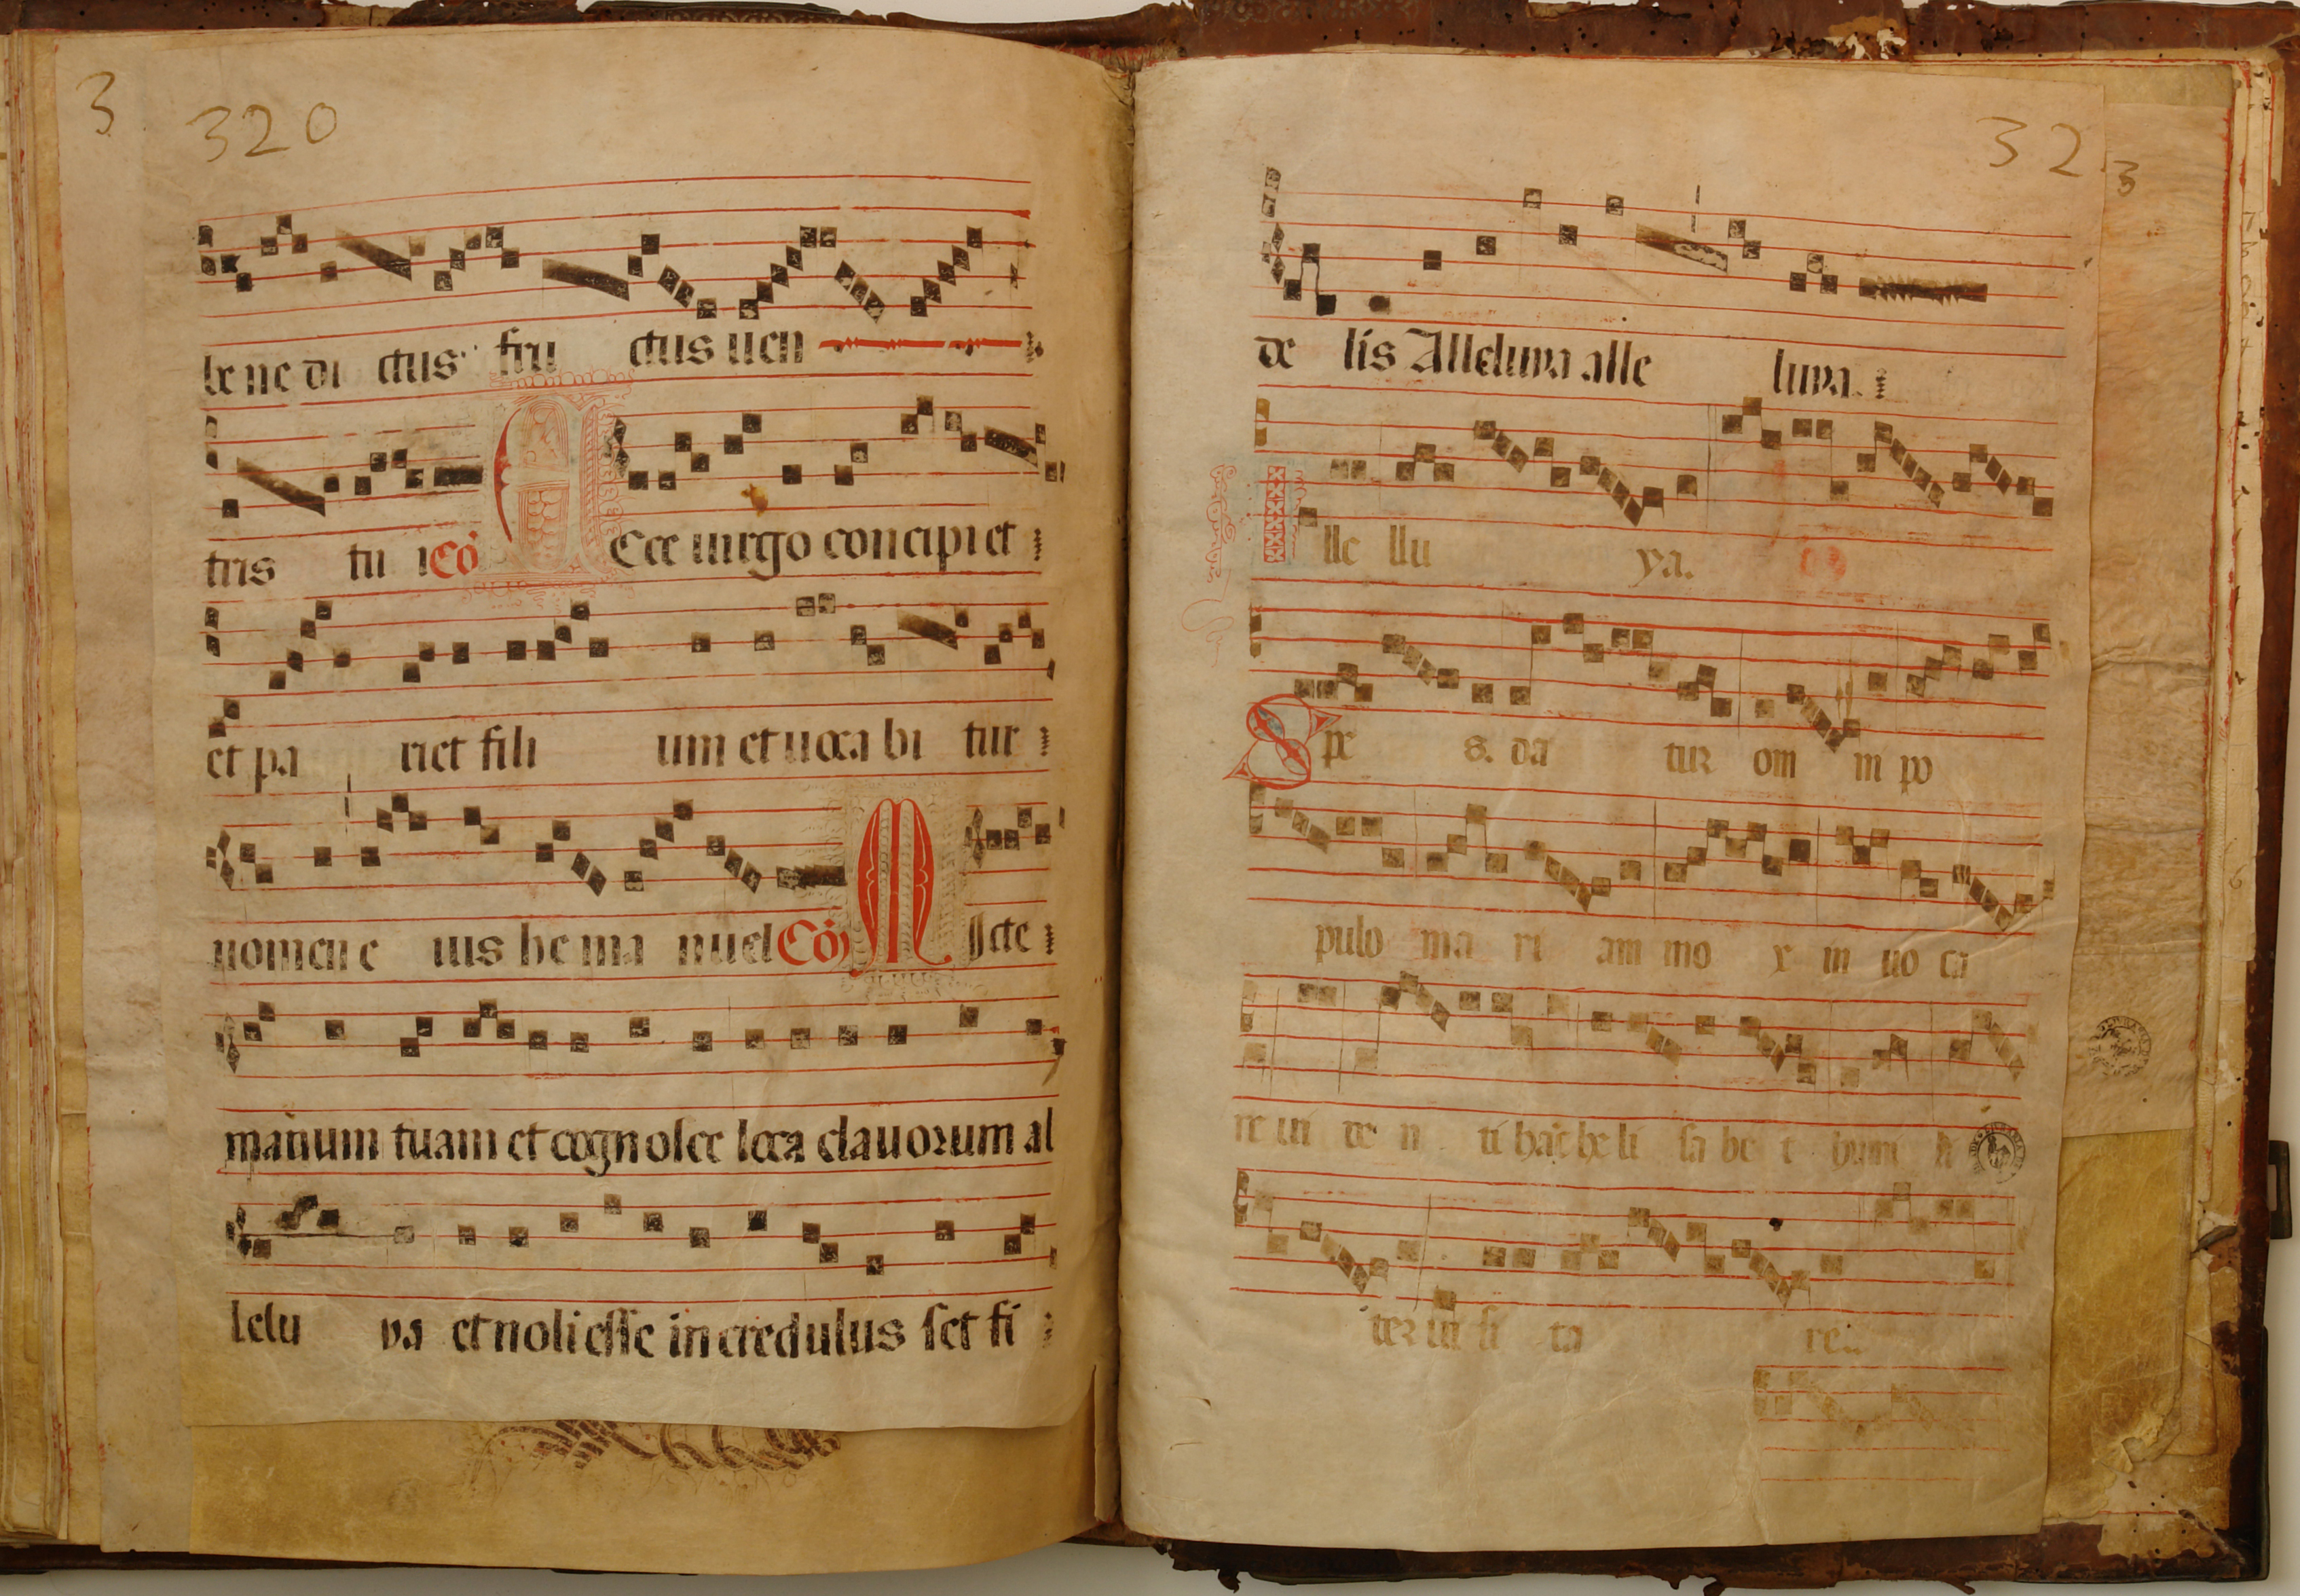 3 320
be ne di ctus fru ctus uen
tris tu i Cō Ecce uirgo concipi et
et pa riet fili um et uoca bi tur
nomen e ius he ma nuel Cō Mitte
manum tuam et cognosce loca clauorum al
lelu ya et noli esse in credulus set fi
32 3
de lis Alleluya alle luya.
lle llu ya.
Spe s. da tur om in po
pulo ma ri am mo x in uo ca
re ui de n ti hāc he li sa be t humi li
ter ui si ta re.